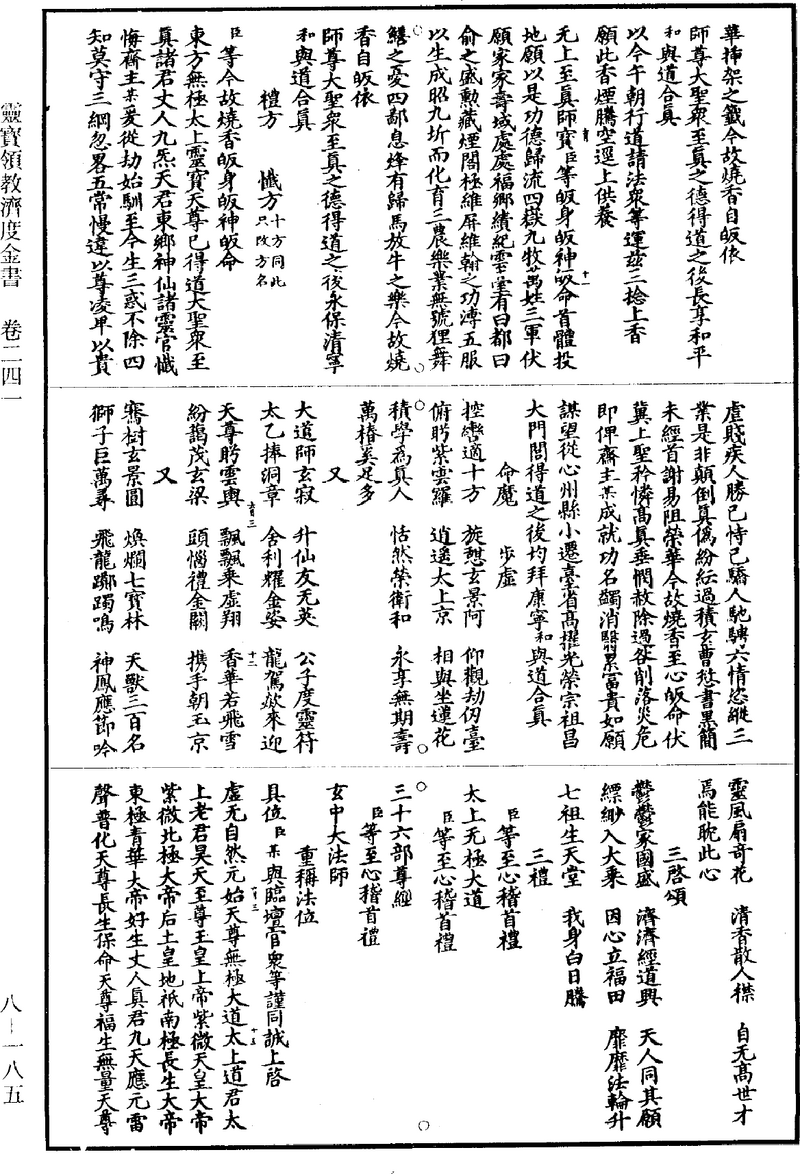 華挿架之籤今故燒香自皈依
師尊大聖衆至真之德得道之後長享和平
和與道合真
以今午朝行道請法衆等運茲三捻上香
願此香煙騰空逕上供養
无上至真師寶臣等皈身皈神皈命首體投
地願以是功德歸流四嶽九牧萬姓三軍伏
願家家壽域處處福鄉績紀雲臺有曰都曰
俞之盛勲藏煙閣極維屏維翰之功溥五服
以生成昭九圻而化育三農樂業無號狸舞
鰌之憂四鄙息烽有歸馬放牛之樂今故燒
香自皈依
師尊大聖衆至真之德得道之後永保清寧
和與道合真
禮方 懺方十方同此只改方名
臣等今故燒香皈身皈神皈命
東方無極太上靈寶天尊已得道大聖衆至
真諸君丈人九炁天君東鄉神仙諸靈官懺
悔齋主某爰從劫始馴至今生三惑不除四
知莫守三綱忽畧五常慢違以尊凌卑以貴
虐賤疾人勝己恃己驕人馳騁六情恣縱三
業是非顛倒真僞紛紜過積玄曹愆書黑簡
未經首謝易阻榮華今故燒香至心皈命伏
冀上聖矜憐髙真垂憫赦除過咎削落災危
即俾齋主某成就功名蠲消翳累富貴如願
謀望從心州縣小遷臺省髙擢光榮宗祖昌
大門閭得道之後均拜康寧和與道合真
命魔 步虛
控轡適十方 旋憩玄景阿 仰觀劫仞臺
俯眄紫雲羅 逍遥太上京 相與坐蓮花
積學為真人 恬然榮衛和 永享無期壽
萬椿奚足多
又
大道師玄寂 升仙友无英 公子度靈符
太乙捧洞章 舍利耀金姿 龍駕欻來迎
天尊眄雲輿 飄飄乘虛翔 香華若飛雪
紛靄茂玄梁 頭惱禮金闕 攜手朝玉京
又
騫樹玄景圓 煥爛七寶林 天獸三百名
獅子巨萬尋 飛龍躑躅鳴 神鳳應節吟
靈風扇竒花 清香散人襟 自无髙世才
焉能耽此心
三啓頌
鬱鬱家國盛 濟濟經道興 天人同其願
縹緲入大乘 因心立福田 靡靡法輪升
七祖生天堂 我身白日騰
三禮
臣等至心稽首禮
太上无極大道
臣等至心稽首禮
三十六部尊經
臣等至心稽首禮
玄中大法師
重稱法位
具位臣某與臨壇官衆等謹同誠上啓
虛无自然元始天尊無極大道太上道君太
上老君昊天至尊玉皇上帝紫微天皇大帝
紫微北極大帝后土皇地祇南極長生大帝
東極青華大帝好生丈人真君九天應元雷
聲普化天尊長生保命天尊福生無量天尊
靈寶領教濟度金書 卷二四一
八－一八五